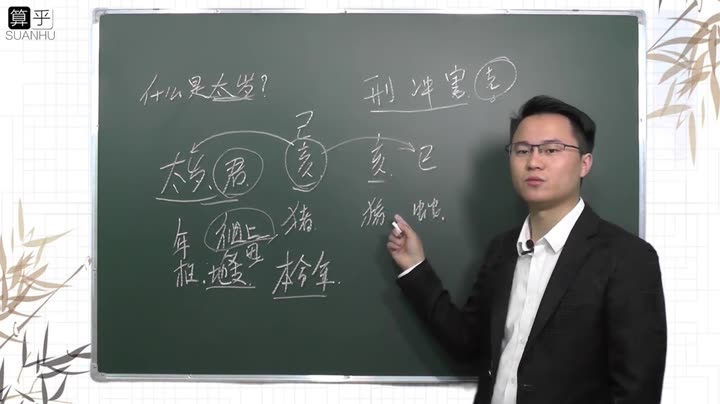 算乎
SUANHU
什么是太岁?
刑 冲 害 克
己
太岁.君. 亥 亥. 巳
年柱. 地支 猪 猪 蛇.
本命年.